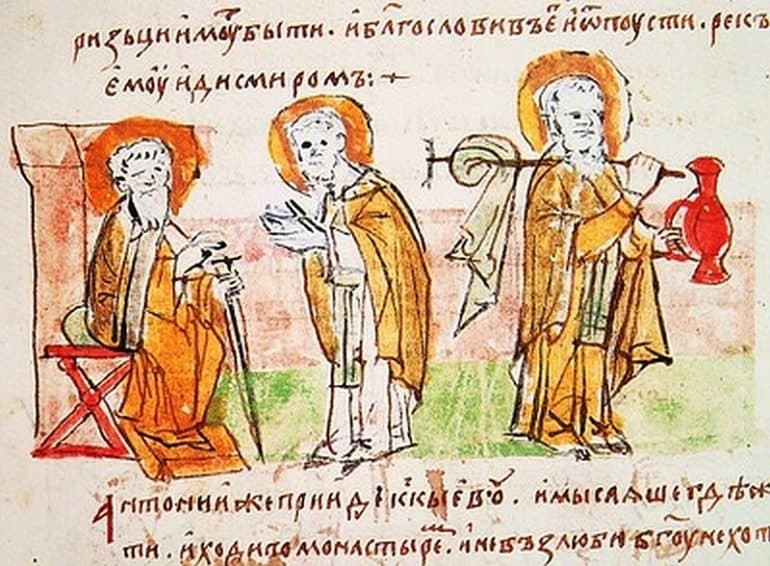 ризьци имоу быти . и блгословивъ е и ѿпоусти . рекъ
емоу иди с миромъ :
Антонии же прииде къ кыевоу . и мысляше где жи
ти . и ходи по монастыремъ . и не възлюби бгоу не хот